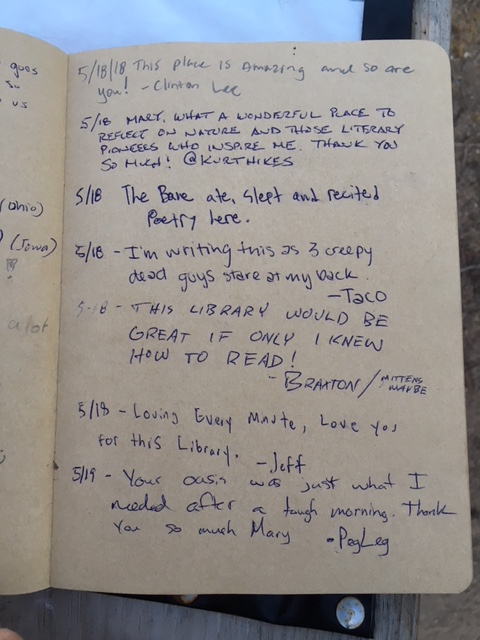 goes
so
us
(Ohio)
(Iowa)
a lot
5/18/18 This place is Amazing and so are
you! - Clinton Lee
5/18 MARY, WHAT A WONDERFUL PLACE TO
REFLECT ON NATURE AND THOSE LITERARY
PIONEERS WHO INSPIRE ME. THANK YOU
SO MUCH! @KURTHIKES
5/18 The Bare ate, slept and recited
Poetry here.
5/18 - I'm writing this as 3 creepy
dead guys stare at my back.
- Taco
5-18 - THIS LIBRARY WOULD BE
GREAT IF ONLY I KNEW
HOW TO READ!
- BRAXTON / MITTENS
MAYBE
5/18 - Loving Every Minute, Love you
for this Library. - Jeff
5/19 - Your oasis was just what I
needed after a tough morning. Thank
You so much Mary - PegLeg